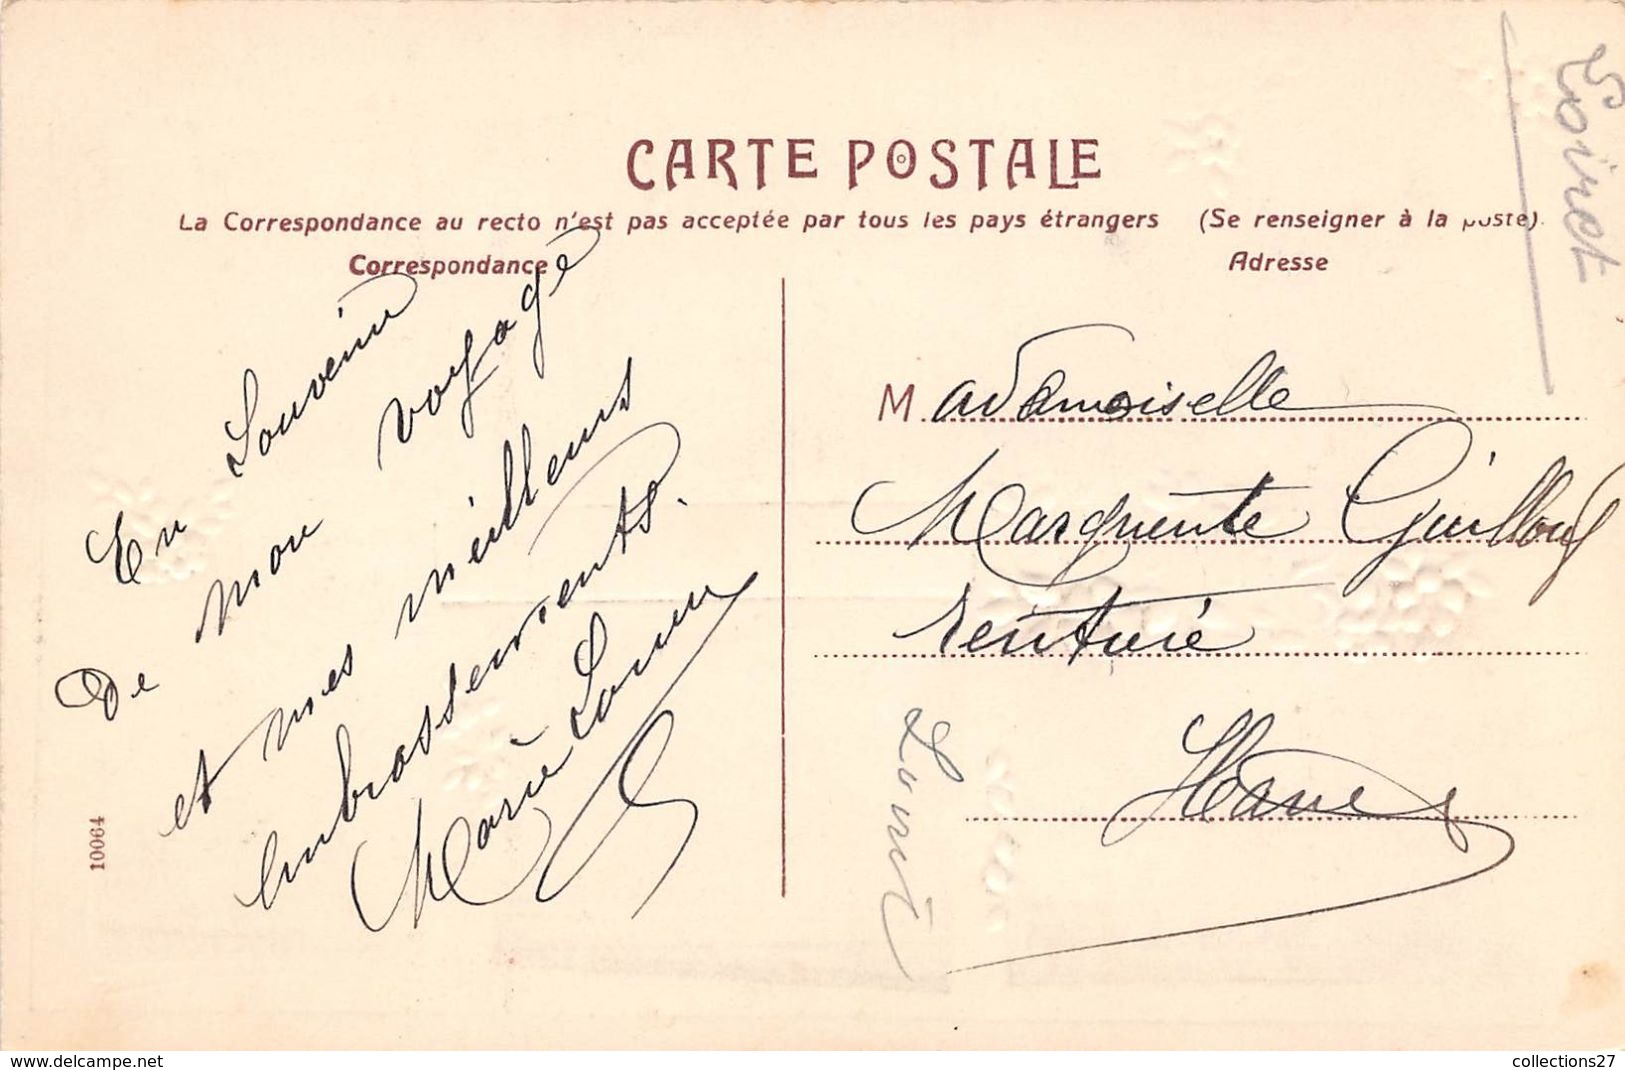 CARTE POSTALE
La Correspondance au recto n'est pas acceptée par tous les pays étrangers (Se renseigner à la poste).
Correspondance
Adresse
En Souvenir
De mon voyage
et mes meilleurs
embrassements.
Marie
10064
Mademoiselle
Marguerite Guillou
rentière
Loiret
www.delcampe.net
collections27